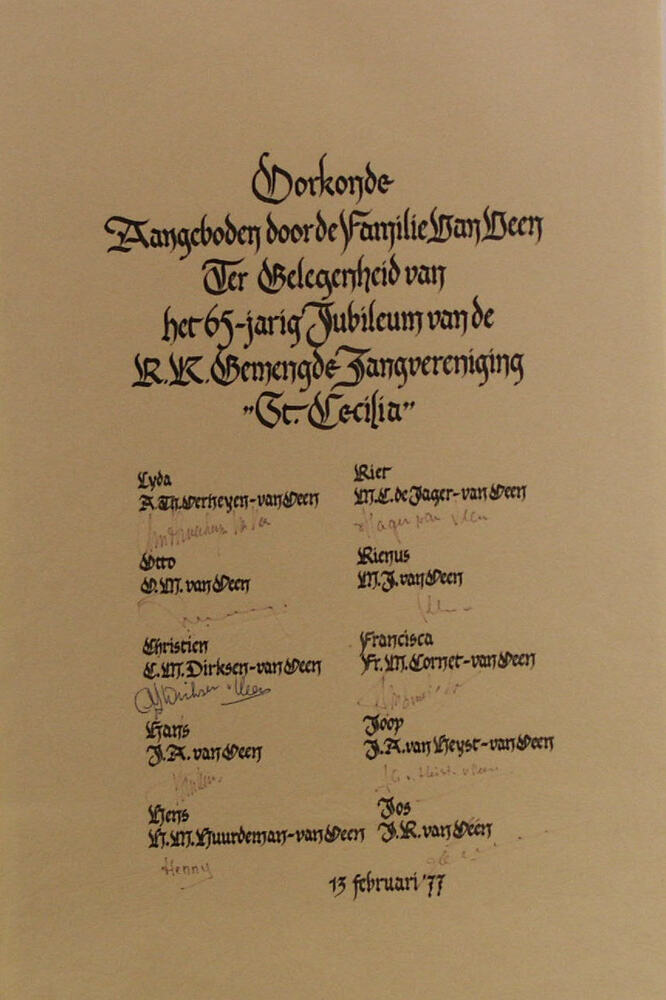 Oorkonde
Aangeboden door de Familie Van Veen
Ter Gelegenheid van
het 65-jarig Jubileum van de
R.K. Gemengde Zangvereniging
"St. Cecilia"
Lyda
A.Th. Verheyen-van Veen
Riet
M.C. de Jager-van Veen
Jager van Veen
Otto
O.M. van Veen
Rienus
M.J. van Veen
Christien
C.M. Dirksen-van Veen
Dirksen v Veen
Francisca
Fr. M. Cornet-van Veen
Hans
J.A. van Veen
Joop
J.A. van Heyst-van Veen
Hens
H.M. Huurdeman-van Veen
Henny
Jos
J.R. van Veen
13 februari '77